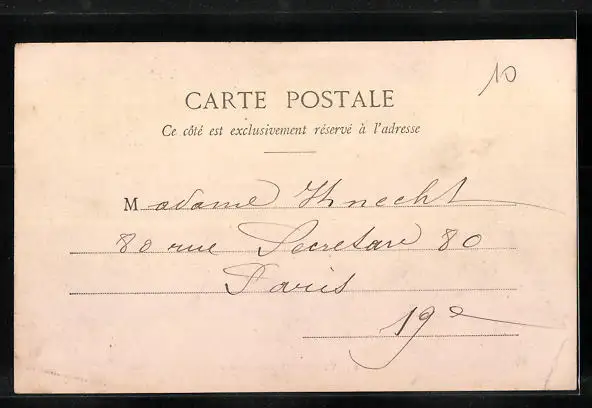 10
CARTE POSTALE
Ce côté est exclusivement réservé à l'adresse
Madame Knecht
80 rue Secretan 80
Paris
19e